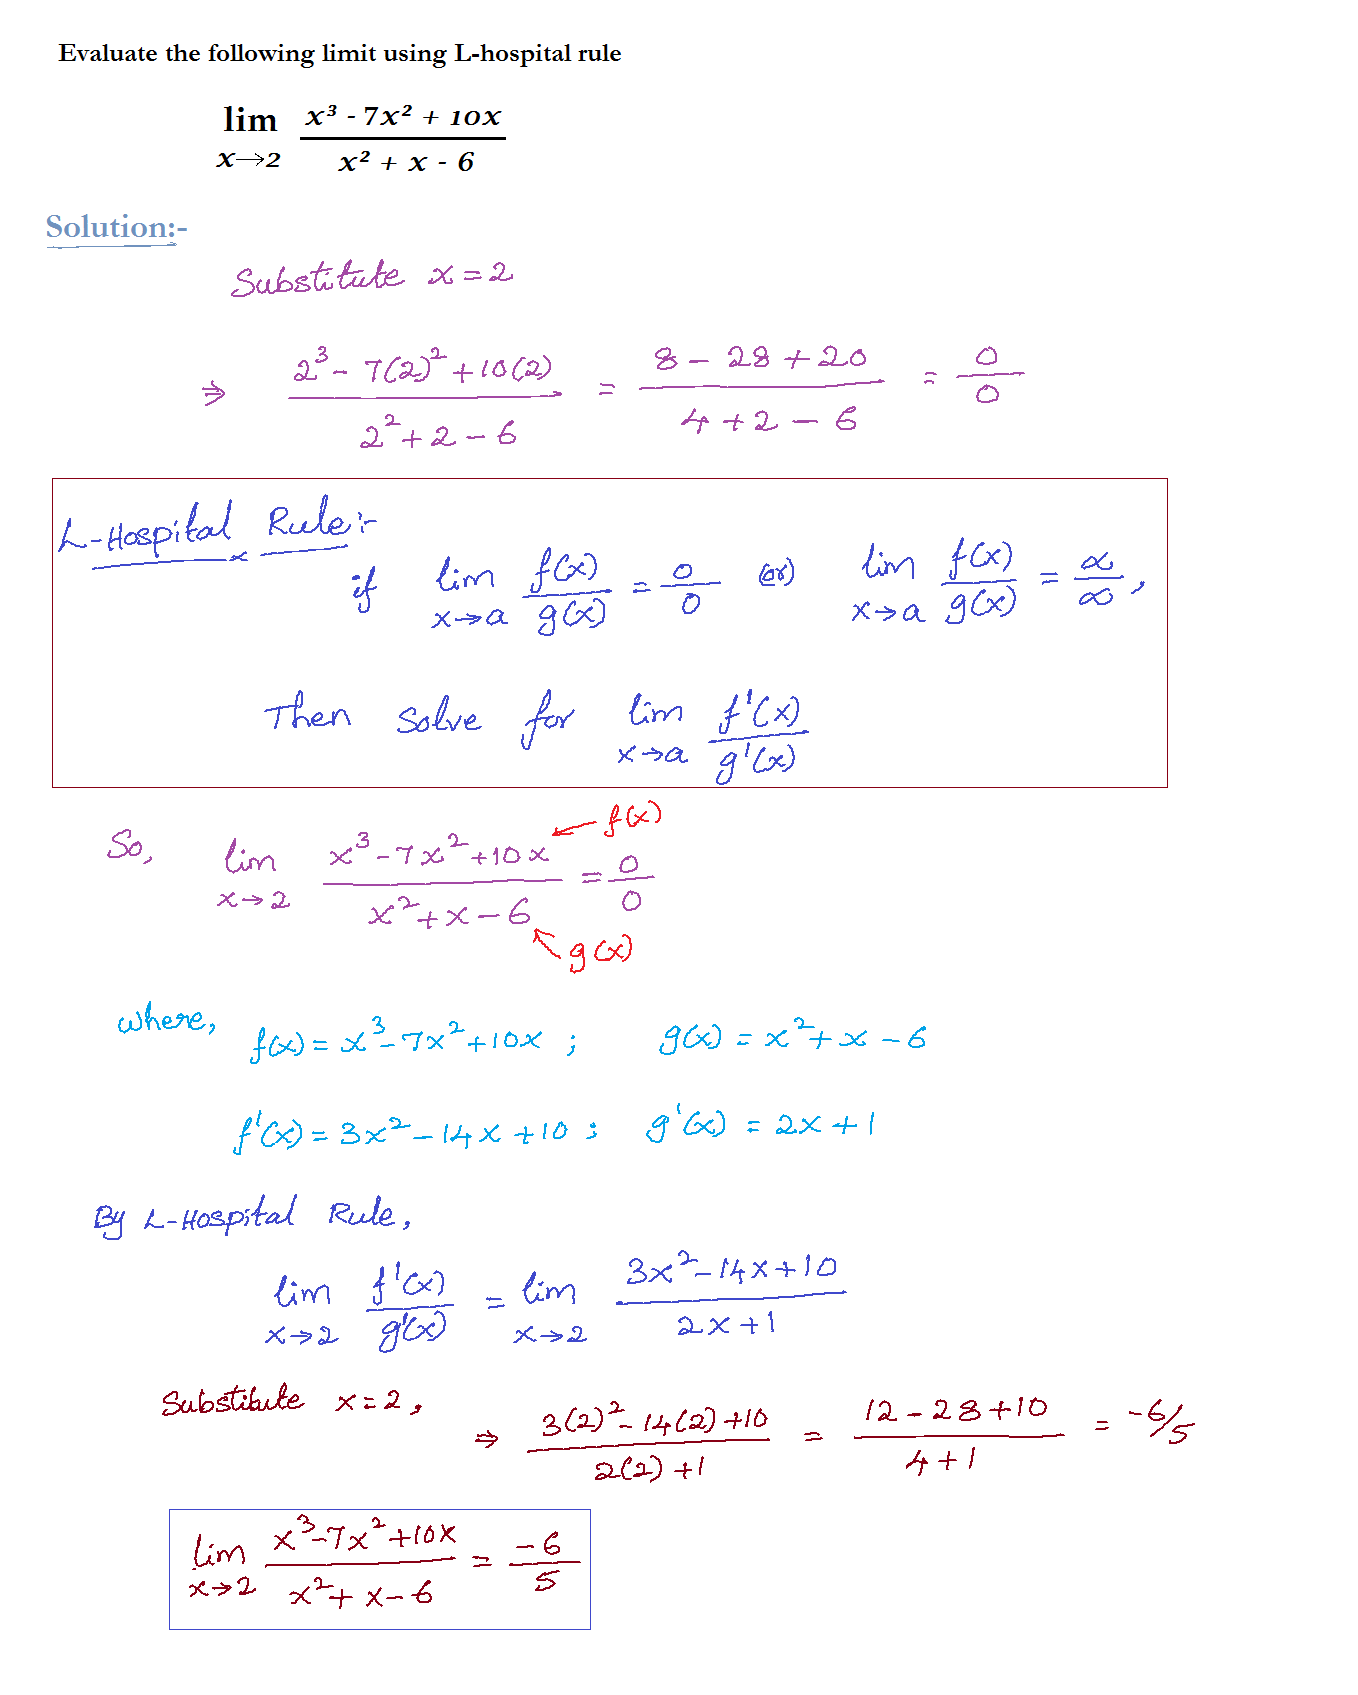 Evaluate the following limit using L-hospital rule
lim x→2 (x³ - 7x² + 10x) / (x² + x - 6)
Solution:-
Substitute x = 2
⇒ (2³ - 7(2)² + 10(2)) / (2² + 2 - 6) = (8 - 28 + 20) / (4 + 2 - 6) = 0/0
L-Hospital Rule:-
if lim x→a f(x)/g(x) = 0/0 (or) lim x→a f(x)/g(x) = ∞/∞,
Then solve for lim x→a f'(x)/g'(x)
So, lim x→2 (x³ - 7x² + 10x) / (x² + x - 6) = 0/0
← f(x)
↖ g(x)
where,
f(x) = x³ - 7x² + 10x ; g(x) = x² + x - 6
f'(x) = 3x² - 14x + 10 ; g'(x) = 2x + 1
By L-Hospital Rule,
lim x→2 f'(x)/g'(x) = lim x→2 (3x² - 14x + 10) / (2x + 1)
Substitute x = 2,
⇒ (3(2)² - 14(2) + 10) / (2(2) + 1) = (12 - 28 + 10) / (4 + 1) = -6/5
lim x→2 (x³ - 7x² + 10x) / (x² + x - 6) = -6/5